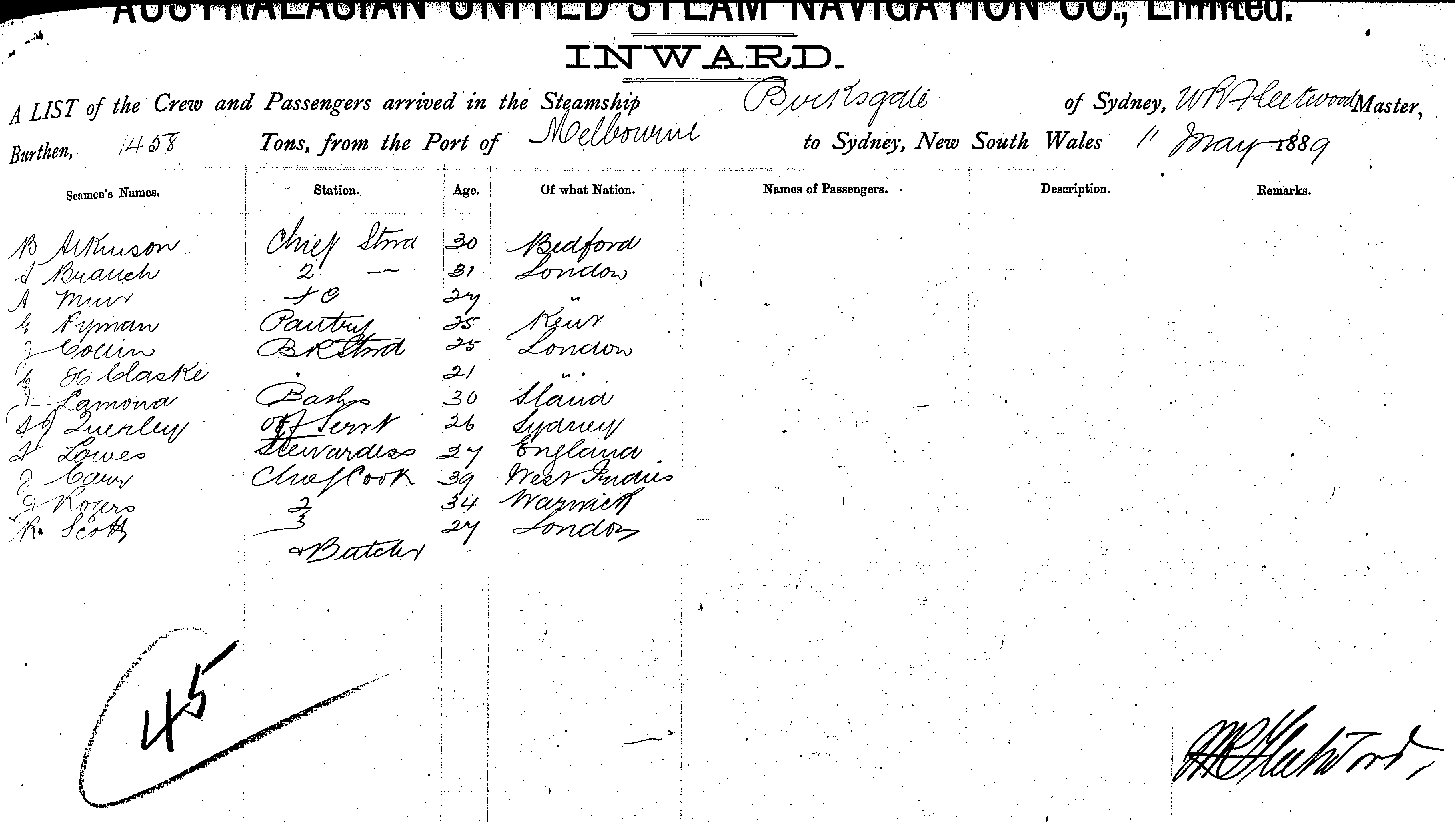 AUSTRALASIAN UNITED STEAM NAVIGATION CO., Limited.
INWARD.
A LIST of the Crew and Passengers arrived in the Steamship Barksgate of Sydney, WR Fleetwood Master,
Burthen, 1458 Tons, from the Port of Melbourne to Sydney, New South Wales 11 May 1889
Seamen's Names. Station. Age. Of what Nation. Names of Passengers. Description. Remarks.
B Atkinson Chief Stwd 30 Bedford
Branch 2 — 31 London
A Muir 27 "
G Pyman Pantry 25 Kent
J Collin BR Stwd 25 London
H Claske 21 "
Lamond 30
Querley Off Servt 26 Sydney
Lowes Stewardess 27 England
J Chief Cook 39 West Indies
Rogers 2 34 Warwick
R. Scott 3 27 London
& Butcher
45
WR Fleetwood